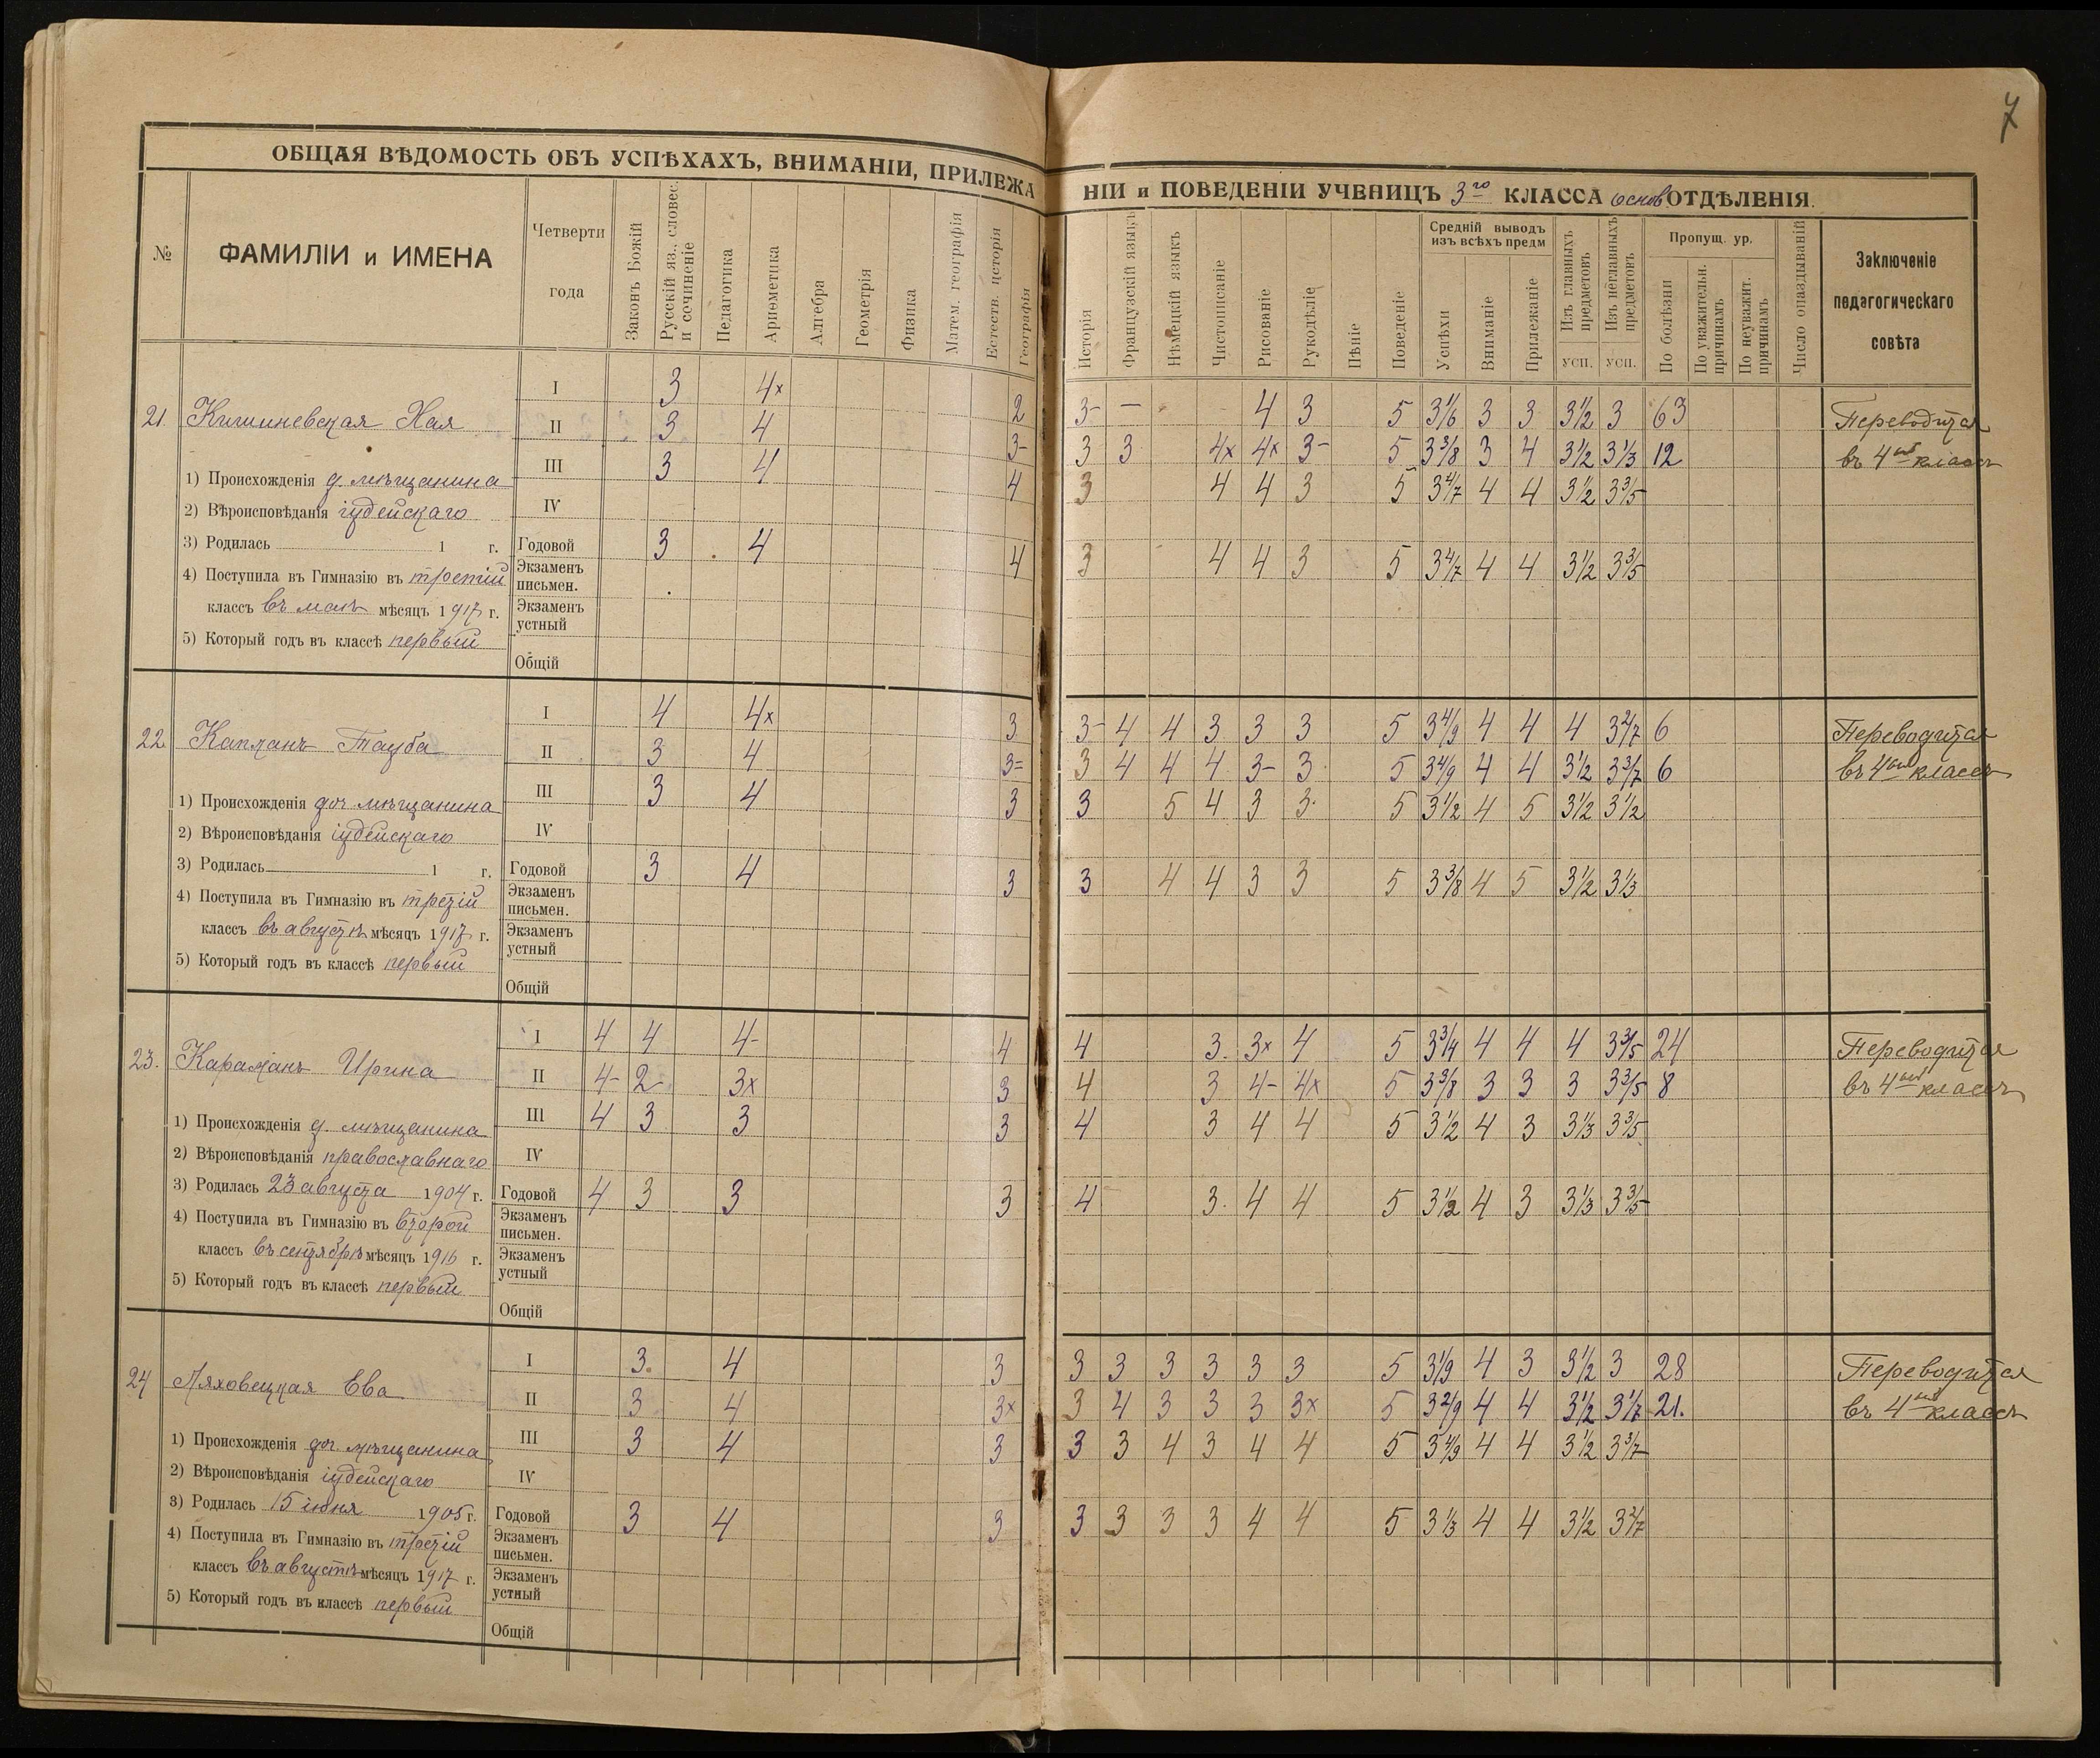 7
ОБЩАЯ ВѢДОМОСТЬ ОБЪ УСПѢХАХЪ, ВНИМАНІИ, ПРИЛЕЖА
НІИ и ПОВЕДЕНІИ УЧЕНИЦЪ 3го КЛАССА основ. ОТДѢЛЕНІЯ.
№
ФАМИЛІИ и ИМЕНА
Четверти
года
Законъ Божій
Русскій яз., словес.
и сочиненіе
Педагогика
Ариѳметика
Алгебра
Геометрія
Физика
Матем. географія
Естеств. исторія
Географія
Исторія
Французскій языкъ
Нѣмецкій языкъ
Чистописаніе
Рисованіе
Рукодѣліе
Пѣніе
Поведеніе
Средній выводъ
изъ всѣхъ предм
Успѣхи
Вниманіе
Прилежаніе
Изъ главныхъ
предметовъ
усп.
Изъ неглавныхъ
предметовъ
усп.
Пропущ. ур.
По болѣзни
По уважительн.
причинамъ
По неуважит.
причинамъ
Число опаздываній
Заключеніе
педагогическаго
совѣта
21. Кишиневская Хая
1) Происхожденія д. мѣщанина
2) Вѣроисповѣданія іудейскаго
3) Родилась 1 г.
4) Поступила въ Гимназію въ третій
классъ въ маѣ мѣсяцъ 1917 г.
5) Который годъ въ классѣ первый
I 3 4х 2 3- — 4 3 5 3 1/6 3 3 3 1/2 3 63
II 3 4 3- 3 3 4х 4х 3- 5 3 3/8 3 4 3 1/2 3 1/3 12
III 3 4 4 3 4 4 3 5 3 4/7 4 4 3 1/2 3 3/5
IV
Годовой 3 4 4 3 4 4 3 5 3 4/7 4 4 3 1/2 3 3/5
Экзаменъ
письмен.
Экзаменъ
устный
Общій
Переводится
въ 4ый классъ
22. Капланъ Тауба
1) Происхожденія доч. мѣщанина
2) Вѣроисповѣданія іудейскаго
3) Родилась 1 г.
4) Поступила въ Гимназію въ третій
классъ въ августѣ мѣсяцъ 1917 г.
5) Который годъ въ классѣ первый
I 4 4х 3 3- 4 4 3 3 3 5 3 4/9 4 4 4 3 2/7 6
II 3 4 3= 3 4 4 4 3- 3 5 3 4/9 4 4 3 1/2 3 3/7 6
III 3 4 3 3 5 4 3 3 5 3 1/2 4 5 3 1/2 3 1/2
IV
Годовой 3 4 3 3 4 4 3 3 5 3 3/8 4 5 3 1/2 3 1/3
Экзаменъ
письмен.
Экзаменъ
устный
Общій
Переводится
въ 4ый классъ
23. Караманъ Ирина
1) Происхожденія д. мѣщанина
2) Вѣроисповѣданія православнаго
3) Родилась 23 августа 1904 г.
4) Поступила въ Гимназію въ второй
классъ въ сентябрѣ мѣсяцъ 1916 г.
5) Который годъ въ классѣ первый
I 4 4 4- 4 4 3. 3х 4 5 3 3/4 4 4 4 3 3/5 24
II 4- 2 3х 3 4 3 4- 4х 5 3 3/8 3 3 3 3 3/5 8
III 4 3 3 3 4 3 4 4 5 3 1/2 4 3 3 1/3 3 3/5
IV
Годовой 4 3 3 3 4 3. 4 4 5 3 1/2 4 3 3 1/3 3 3/5
Экзаменъ
письмен.
Экзаменъ
устный
Общій
Переводится
въ 4ый классъ
24 Ляховецкая Ева
1) Происхожденія доч. мѣщанина
2) Вѣроисповѣданія іудейскаго
3) Родилась 15 іюня 1905 г.
4) Поступила въ Гимназію въ третій
классъ въ августѣ мѣсяцъ 1917 г.
5) Который годъ въ классѣ первый
I 3. 4 3 3 3 3 3 3 3 5 3 1/9 4 3 3 1/2 3 28
II 3 4 3х 3 4 3 3 3 3х 5 3 2/9 4 4 3 1/2 3 1/7 21.
III 3 4 3 3 3 4 3 4 4 5 3 4/9 4 4 3 1/2 3 3/7
IV
Годовой 3 4 3 3 3 3 3 4 4 5 3 1/3 4 4 3 1/2 3 2/7
Экзаменъ
письмен.
Экзаменъ
устный
Общій
Переводится
въ 4ый классъ